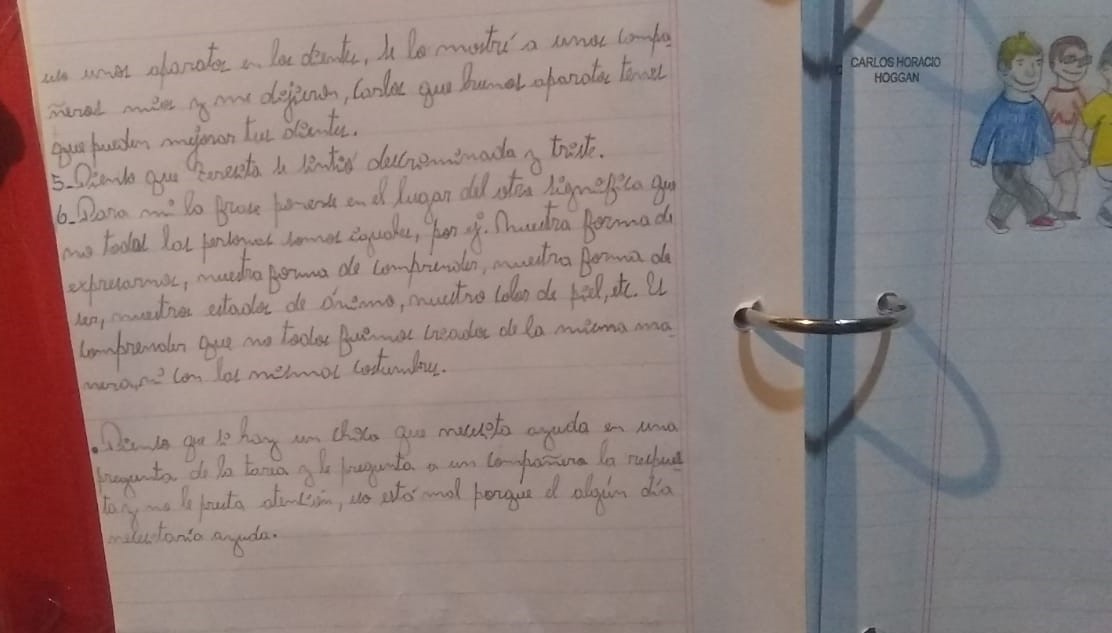 uso unos aparatos en los dientes, se lo mostré a unos compa
ñeros míos y me dijeron, Carlos que buenos aparatos tenes
que pueden mejorar tus dientes.
5-Siento que se sintió descrominada y triste.
6-Para mí la frase ponerse en el lugar del otro significa que
no todos las personas somos iguales, por ej. Nuestra forma de
expresarnos, nuestra forma de comprender, nuestra forma de
ser, nuestros estados de ánimo, nuestro color de piel, etc. Es
comprender que no todos fuimos creados de la misma ma
nera, ni con las mismas costumbres.
.Siento que si hay un chico que necesita ayuda en una
pregunta de la tarea y le pregunta a un compañero la respues
ta y no le presta atención, eso está mal porque el algún día
necesitaría ayuda.
CARLOS HORACIO
HOGGAN